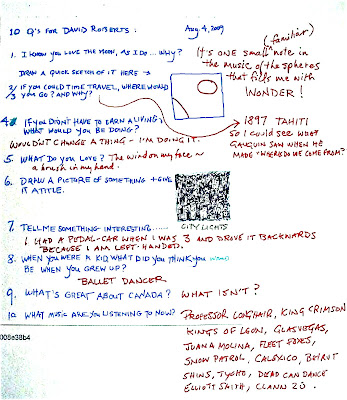 10 Q's FOR DAVID ROBERTS: Aug. 4, 2009
1. I KNOW YOU LOVE THE MOON, AS I DO... WHY?
IT'S ONE SMALL (familiar) note in
the music of the spheres
that fills me with
WONDER!
DRAW A QUICK SKETCH OF IT HERE →
2/ IF YOU COULD TIME TRAVEL, WHERE WOULD
3 YOU GO? AND WHY?
1897 TAHITI
SO I COULD SEE WHAT
GAUGUIN SAW WHEN HE
MADE "WHERE DO WE COME FROM?"
4 IF YOU DIDN'T HAVE TO EARN A LIVING,
WHAT WOULD YOU BE DOING?
WOULDN'T CHANGE A THING - I'M DOING IT.
5. WHAT DO YOU LOVE? The wind on my face ~
a brush in my hand.
6. DRAW A PICTURE OF SOMETHING + GIVE
IT A TITLE.
CITY LIGHTS
7. TELL ME SOMETHING INTERESTING......
I HAD A PEDAL-CAR WHEN I WAS 3 AND DROVE IT BACKWARDS
BECAUSE I AM LEFT-HANDED.
8. WHEN YOU WERE A KID WHAT DID YOU THINK YOU
BE WHEN YOU GREW UP?
BALLET DANCER
9. WHAT'S GREAT ABOUT CANADA? WHAT ISN'T?
10. WHAT MUSIC ARE YOU LISTENING TO NOW?
PROFESSOR LONGHAIR, KING CRIMSON
KINGS OF LEON, GLASVEGAS,
JUANA MOLINA, FLEET FOXES,
SNOW PATROL, CALEXICO, BEIRUT
SHINS, TYCHO, DEAD CAN DANCE
ELLIOTT SMITH, CLANN ZÚ.
008e38b4